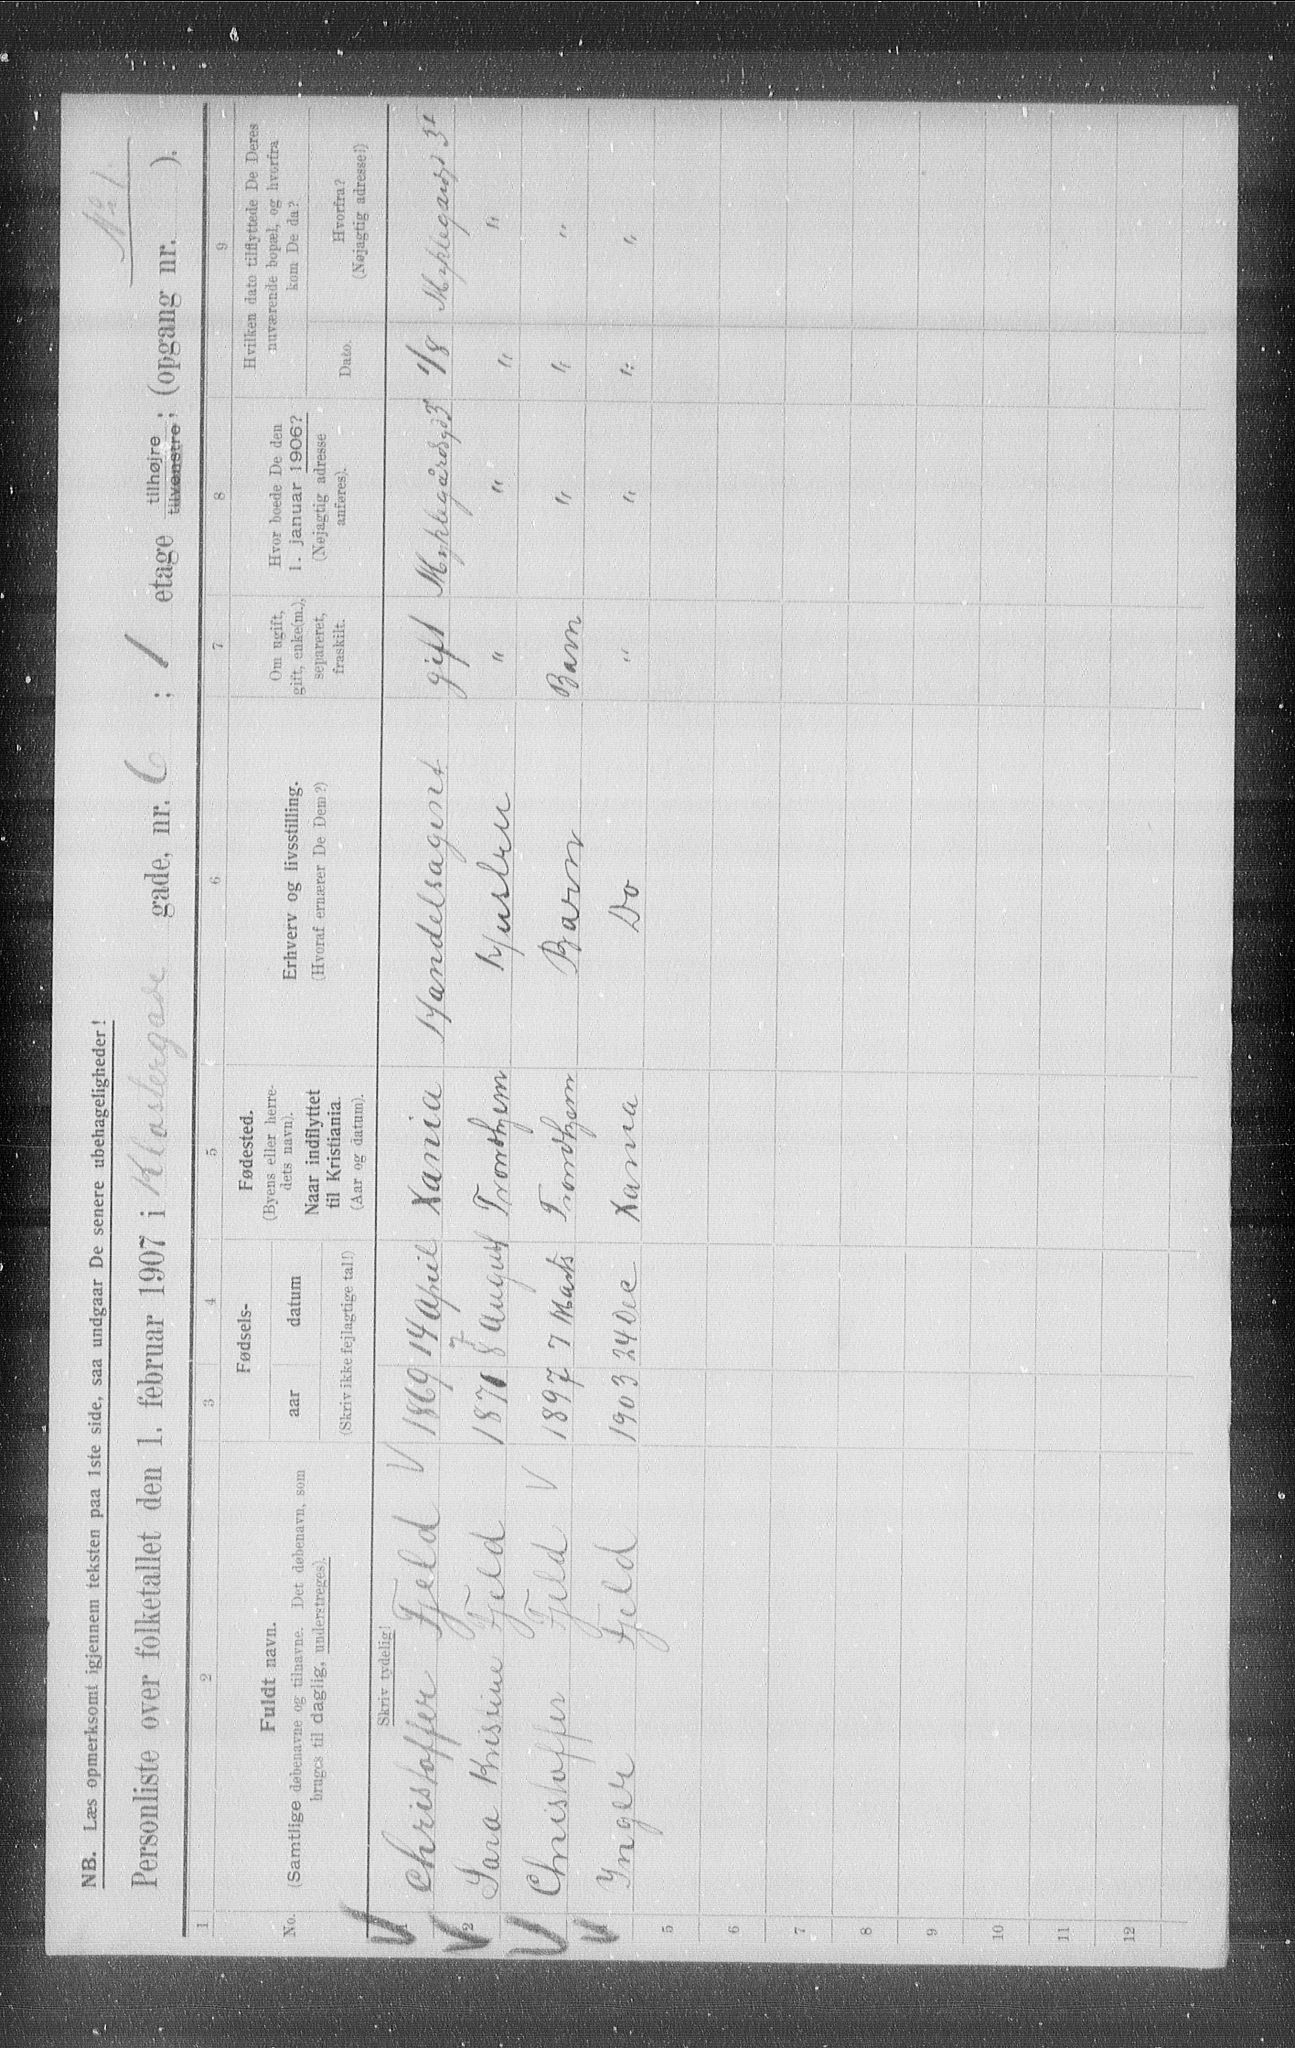 NB. Læs opmerksomt igjennem teksten paa 1ste side, saa undgaar De senere ubehageligheder!
No 1.
Personliste over folketallet den 1. februar 1907 i Klostergade gade, nr. 6 ; 1 etage tilhøjre tilvenstre ; (opgang nr. ).
1 2 3 4 5 6 7 8 9
No.
Fuldt navn.
(Samtlige døbenavne og tilnavne. Det døbenavn, som
bruges til daglig, understreges).
Fødsels-
aar datum
(Skriv ikke fejlagtige tal!)
Fødested.
(Byens eller herre-
dets navn).
Naar indflyttet
til Kristiania.
(Aar og datum).
Erhverv og livsstilling.
(Hvoraf ernærer De Dem?)
Om ugift,
gift, enke(m.),
separeret,
fraskilt.
Hvor boede De den
1. januar 1906?
(Nøjagtig adresse
anføres).
Hvilken dato tilflyttede De Deres
nuværende bopæl, og hvorfra
kom De da?
Dato.
Hvorfra?
(Nøjagtig adresse!)
Skriv tydelig!
1 Christoffer Fjeld V 1869 14 April Xania Handelsagent gift 1/8
2 Sara Kristine Fjeld 1871 8 August Trondhjem Hustru " " " "
Christoffer Fjeld V 1897 7 Marts Trondhjem Barn Barn " " "
Inger Fjeld 1903 24 Dec Xania Do " " " "
5
6
7
8
9
10
11
12